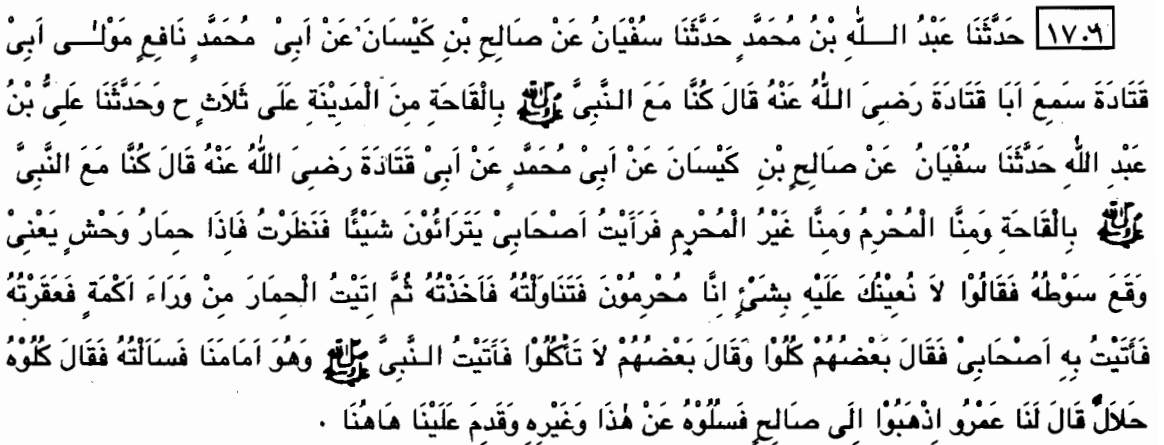 ١٧٠٩ حَدَّثَنَا عَبْدُ اللّٰهِ بْنُ مُحَمَّدٍ حَدَّثَنَا سُفْيَانُ عَنْ صَالِحِ بْنِ كَيْسَانَ عَنْ اَبِىْ مُحَمَّدٍ نَافِعٍ مَوْلٰى اَبِىْ
قَتَادَةَ سَمِعَ اَبَا قَتَادَةَ رَضِىَ اللّٰهُ عَنْهُ قَالَ كُنَّا مَعَ النَّبِىَّ ﷺ بِالْقَاحَةِ مِنَ الْمَدِيْنَةِ عَلَى ثَلَاثٍ ح وَحَدَّثَنَا عَلِىُّ بْنُ
عَبْدِ اللّٰهِ حَدَّثَنَا سُفْيَانُ عَنْ صَالِحِ بْنِ كَيْسَانَ عَنْ اَبِىْ مُحَمَّدٍ عَنْ اَبِىْ قَتَادَةَ رَضِىَ اللّٰهُ عَنْهُ قَالَ كُنَّا مَعَ النَّبِىَّ
ﷺ بِالْقَاحَةِ وَمِنَّا الْمُحْرِمُ وَمِنَّا غَيْرُ الْمُحْرِمِ فَرَأَيْتُ اَصْحَابِىْ يَتَرَائُوْنَ شَيْئًا فَنَظَرْتُ فَاِذَا حِمَارُ وَحْشٍ يَعْنِىْ
وَقَعَ سَوْطُهُ فَقَالُوْا لَا نُعِيْنُكَ عَلَيْهِ بِشَىْءٍ اِنَّا مُحْرِمُوْنَ فَتَنَاوَلْتُهُ فَاَخَذْتُهُ ثُمَّ اَتَيْتُ الْحِمَارَ مِنْ وَرَاءِ اَكَمَةٍ فَعَقَرْتُهُ
فَأَتَيْتُ بِهِ اَصْحَابِىْ فَقَالَ بَعْضُهُمْ كُلُوْا وَقَالَ بَعْضُهُمْ لَا تَأْكُلُوْا فَأَتَيْتُ النَّبِىَّ ﷺ وَهُوَ اَمَامَنَا فَسَاَلْتُهُ فَقَالَ كُلُوْهُ
حَلَالٌ قَالَ لَنَا عَمْرُو اِذْهَبُوْا اِلَى صَالِحٍ فَسَلُوْهُ عَنْ هٰذَا وَغَيْرِهِ وَقَدِمَ عَلَيْنَا هَاهُنَا ٠